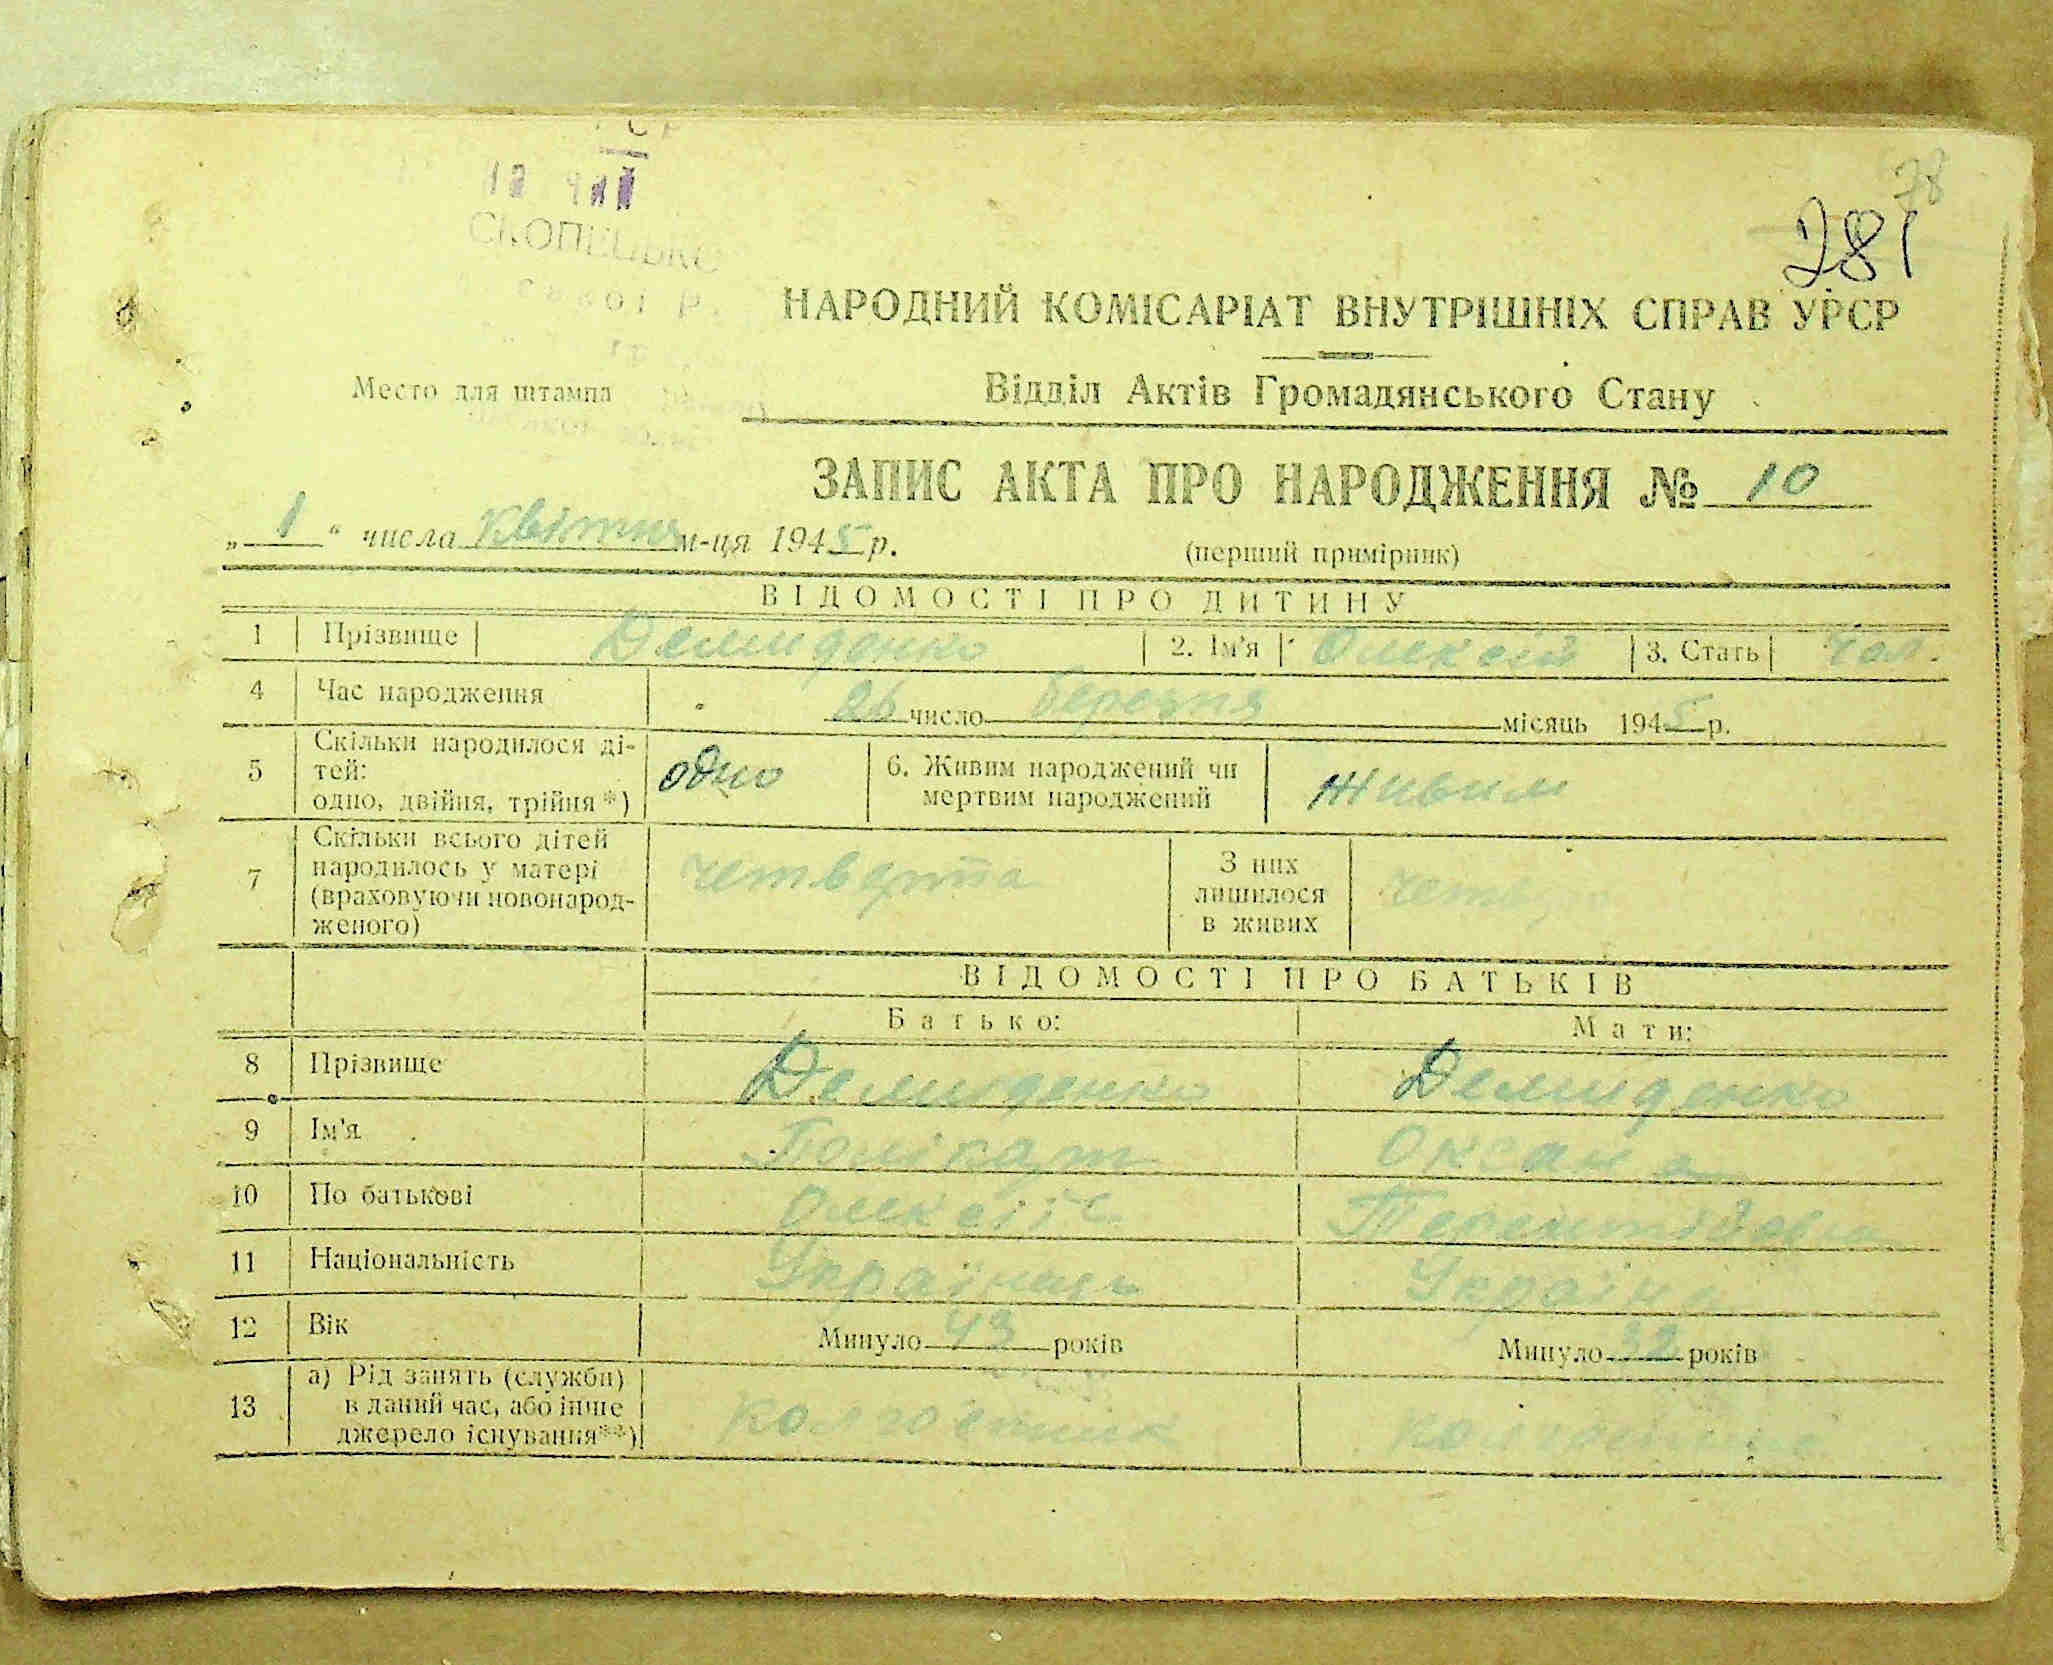 78
281
СКОПЕЦЬКО
НАРОДНИЙ КОМІСАРІАТ ВНУТРІШНІХ СПРАВ УРСР
Место для штампа
Відділ Актів Громадянського Стану
ЗАПИС АКТА ПРО НАРОДЖЕННЯ № 10
„ 1 “ числа квітня м-ця 1945 р.
(перший примірник)
ВІДОМОСТІ ПРО ДИТИНУ
1 Прізвище Демиденко 2. Ім'я Олексій 3. Стать Чол.
4 Час народження 26 число березня місяць 1945 р.
5 Скільки народилося дітей: одно, двійня, трійня*) одно 6. Живим народжений чи мертвим народжений Живим
7 Скільки всього дітей народилось у матері (враховуючи новонародженого) четверта З них лишилося в живих
ВІДОМОСТІ ПРО БАТЬКІВ
Батько: Мати:
8 Прізвище Демиденко Демиденко
9 Ім'я Полікарп Оксана
10 По батькові Олексійч
11 Національність Українець Українка
12 Вік Минуло 43 років Минуло 32 років
13 а) Рід занять (служби) в даний час, або інше джерело існування**) колгоспник